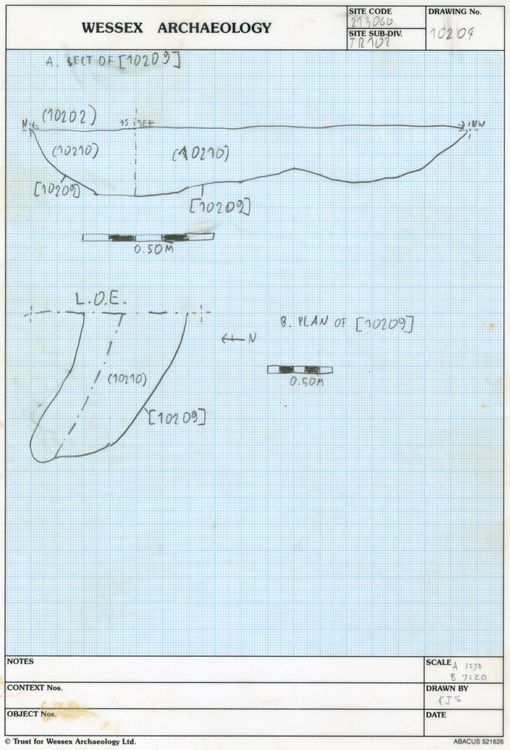 WESSEX ARCHAEOLOGY
SITE CODE
213060
SITE SUB-DIV.
TR102
DRAWING No.
10204
A. SECT OF [10209]
(10202)
NW
(10210)
(10210)
[10209]
[10209]
0.50M
L.O.E.
B. PLAN OF [10209]
N
(10210)
0.50M
[10209]
NOTES
SCALE
CONTEXT Nos.
DRAWN BY
OBJECT Nos.
DATE
© Trust for Wessex Archaeology Ltd.
ABACUS 521626